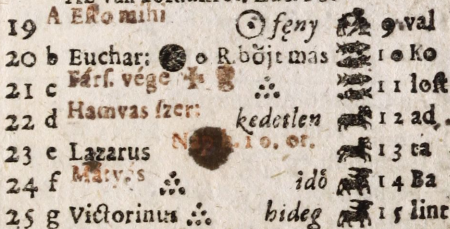 19 A Esto mihi ☉ fęny 9 val
20 b Euchar: ● o R. bőjt más 10 Ko
21 c Fárs. vége 11 lost
22 d Hamvas ſzer: kedetlen 12 ad
23 e Lazarus 10. or. 13 ta
24 f Mátyás idő 14 Ba
25 g Victorinus hideg 15 lint